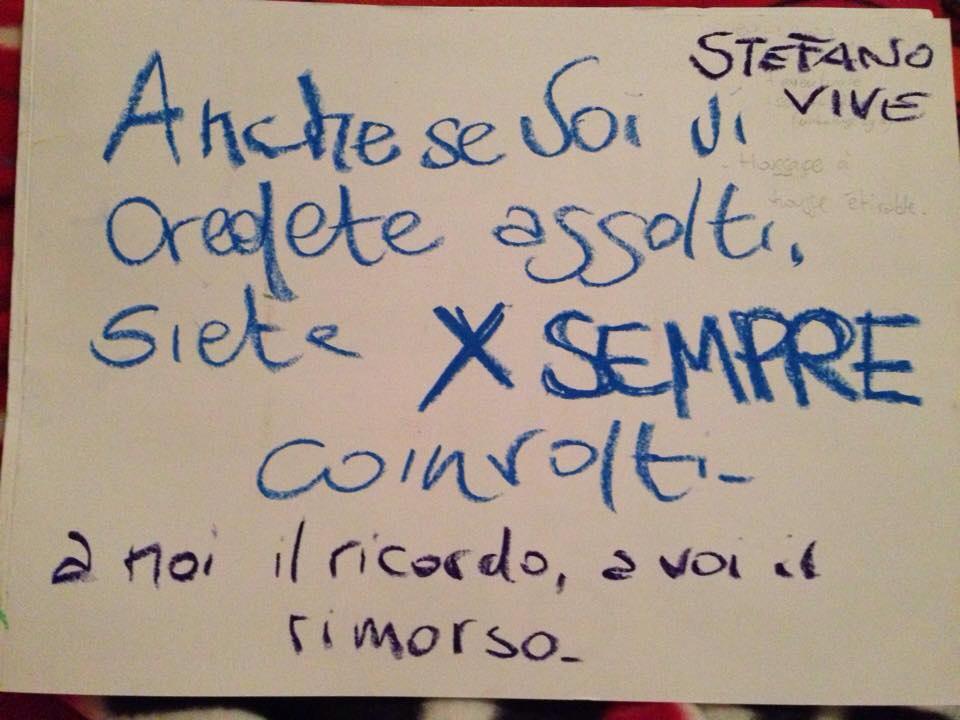 STEFANO
VIVE
Anche se voi vi
credete assolti,
siete X SEMPRE
coinvolti_
a noi il ricordo, a voi il
rimorso_